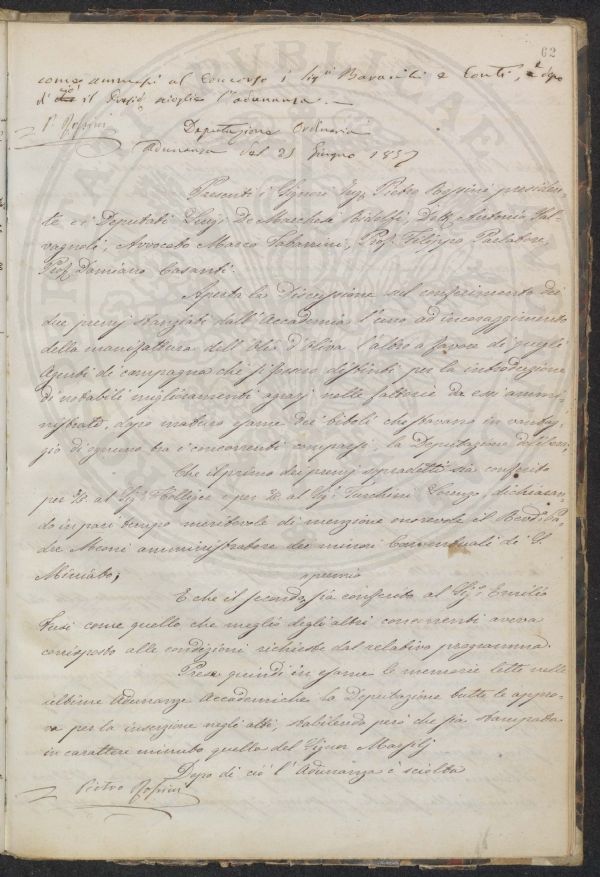 62
come ammessi al Concorso i Sigri e Conti, e dopo
di ciò il Presid. scioglie l'adunanza.
P. Rossini
Deputazione Ordinaria
Adunanza del 21 Giugno 1857
Presenti i Signori Ing. Pietro Rossini presiden-
te e i Deputati Luigi De Marchesi Ridolfi, Dott. Antonio Sal-
vagnoli, Avvocato Marco Tabarrini, Prof. Filippo Parlatore,
Prof. Damiano Casanti.
Aperta la Discussione sul conferimento dei
due premj stanziati dall'Accademia l'uno ad incoraggimento
della manifattura dell'Olio d'Oliva l'altro a favore di quegli
Agenti di campagna che si fossero distinti per la introduzione
di notabili miglioramenti agrarj nelle fattorie da essi ammi-
nistrate, dopo maturo esame dei titoli che stavano in vantag-
gio di ognuno tra i concorrenti comparsi, la Deputazione deliberò
Che il primo dei premj sopradetti sia conferito
per ½ al Sig. e per ½ al Sig. Turchini Lorenzo, dichiaran-
do in pari tempo meritevole di menzione onorevole il Revdo Pa-
dre Meoni amministratore dei minori Conventuali di S.
Miniato;
premio
E che il secondo sia conferito al Sig. Emilio
Fusi come quello che meglio degli altri concorrenti aveva
corrisposto alle condizioni richieste dal relativo programma.
Prese quindi in esame le memorie lette nelle
ultime Adunanze Accademiche la Deputazione tutte le appro-
va per la inserzione negli atti, stabilendo però che sia stampata
in carattere minuto quella del Signor
Dopo di ciò l'Adunanza è sciolta
Pietro Rossini